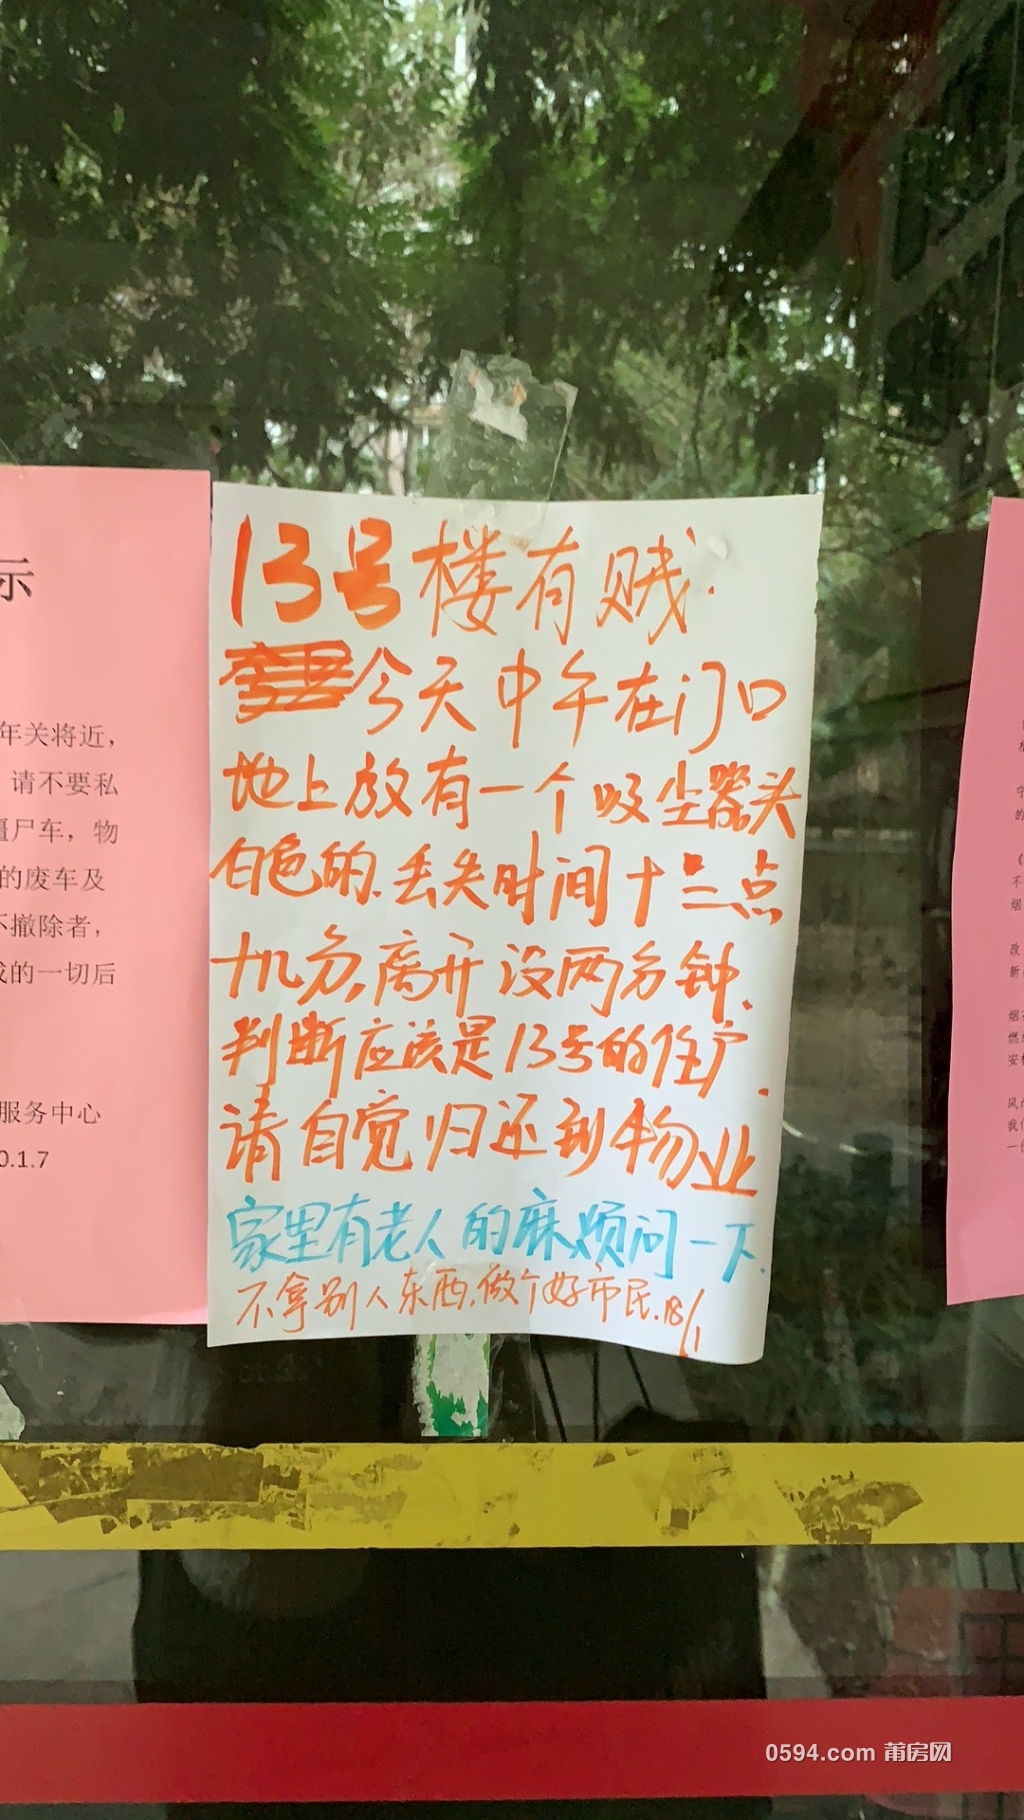 示
年关将近，
请不要私
僵尸车，物
的废车及
不撤除者，
成的一切后
服务中心
0.1.7
13号楼有贼.
今天中午在门口
地上放有一个吸尘器头
白色的.丢失时间十二点
十几分,离开没两分钟.
判断应该是13号的住户.
请自觉归还到物业
家里有老人的麻烦问一下.
不拿别人东西.做个好市民.18/1
的
不
烟
改
新
烟
燃
安
风
我
一
0594.com 莆房网